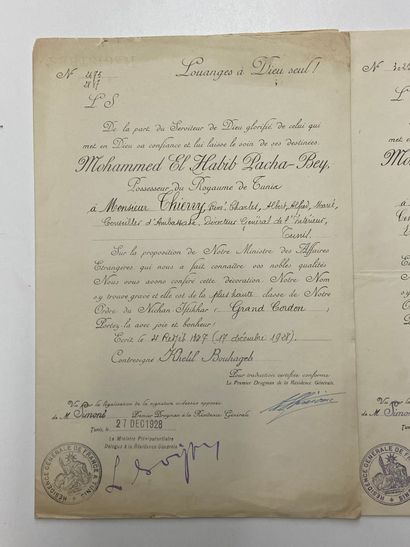 Nº 2475
2817
Louanges à Dieu seul!
L S
De la part du Serviteur de Dieu glorifié, de celui qui
met en Dieu sa confiance et lui laisse le soin de ses destinées,
Mohammed El Habib Pacha-Bey,
Possesseur du Royaume de Tunis
à Monsieur Thierry, René, Charles, Albert, Alfred, Marie,
Conseiller d'Ambassade, Directeur Général de l'Intérieur,
Tunis.
Sur la proposition de Notre Ministre des Affaires
Etrangères qui nous a fait connaître vos nobles qualités
Nous vous avons conféré cette décoration. Notre Nom
s'y trouve gravé et elle est de la plus haute classe de Notre
Ordre du Nichan Iftikhar: Grand Cordon
Portez la avec joie et bonheur!
Ecrit le Redjeb 1347 (17 décembre 1928)
Contresigné Khelil Bouhageb
Pour traduction certifiée conforme.
Le Premier Drogman de la Résidence Générale.
Vu pour la légalisation de la signature ci-dessus apposée
de M Simoni Premier Drogman à la Résidence Générale
Tunis, le 27 DEC 1928
Le Ministre Plénipotentiaire
Délégué à la Résidence Générale
RÉSIDENCE GÉNÉRALE DE FRANCE À TUNIS
Nº
L
M
de M Simoni
Tunis